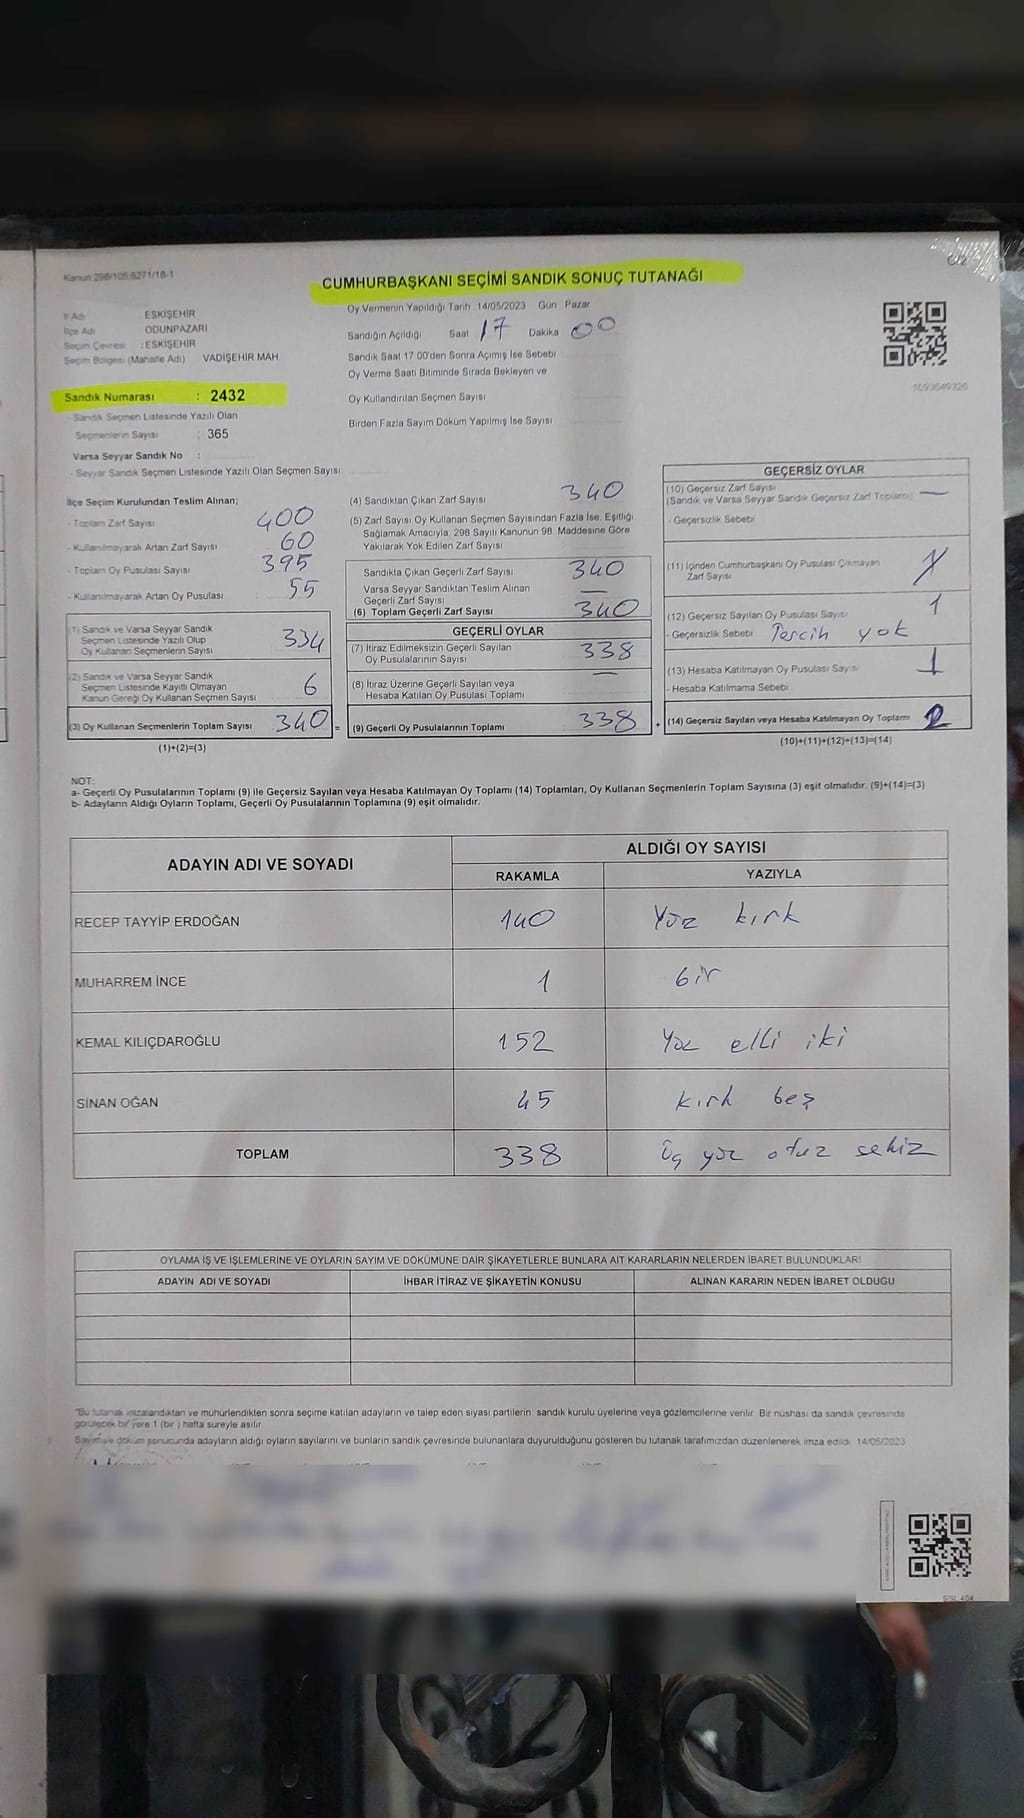 Kanun 298/105 6271/18-1
CUMHURBAŞKANI SEÇİMİ SANDIK SONUÇ TUTANAĞI
İl Adı ESKİŞEHİR
İlçe Adı ODUNPAZARI
Seçim Çevresi : ESKİŞEHİR
Seçim Bölgesi (Mahalle Adı) VADİŞEHİR MAH
Sandık Numarası : 2432
- Sandık Seçmen Listesinde Yazılı Olan
Seçmenlerin Sayısı : 365
Varsa Seyyar Sandık No :
- Seyyar Sandık Seçmen Listesinde Yazılı Olan Seçmen Sayısı
Oy Vermenin Yapıldığı Tarih 14/05/2023 Gün Pazar
Sandığın Açıldığı Saat 17 Dakika 00
Sandık Saat 17 00'den Sonra Açımış İse Sebebi
Oy Verme Saati Bitiminde Sırada Bekleyen ve
Oy Kullandırılan Seçmen Sayısı
Birden Fazla Sayım Döküm Yapılmış İse Sayısı
1093649326
İlçe Seçim Kurulundan Teslim Alınan;
- Toplam Zarf Sayısı 400
- Kullanılmayarak Artan Zarf Sayısı 60
- Toplam Oy Pusulası Sayısı 395
- Kullanılmayarak Artan Oy Pusulası : 55
(1) Sandık ve Varsa Seyyar Sandık
Seçmen Listesinde Yazılı Olup
Oy Kullanan Seçmenlerin Sayısı 334
(2) Sandık ve Varsa Seyyar Sandık
Seçmen Listesinde Kayıtlı Olmayan
Kanun Gereği Oy Kullanan Seçmen Sayısı 6
(3) Oy Kullanan Seçmenlerin Toplam Sayısı 340 =
(1)+(2)=(3)
(4) Sandıktan Çıkan Zarf Sayısı 340
(5) Zarf Sayısı Oy Kullanan Seçmen Sayısından Fazla İse, Eşitliği
Sağlamak Amacıyla, 298 Sayılı Kanunun 98. Maddesine Göre
Yakılarak Yok Edilen Zarf Sayısı
Sandıkta Çıkan Geçerli Zarf Sayısı 340
Varsa Seyyar Sandıktan Teslim Alınan
Geçerli Zarf Sayısı —
(6) Toplam Geçerli Zarf Sayısı 340
GEÇERLİ OYLAR
(7) İtiraz Edilmeksizin Geçerli Sayılan
Oy Pusulalarının Sayısı 338
(8) İtiraz Üzerine Geçerli Sayılan veya
Hesaba Katılan Oy Pusulası Toplamı —
(9) Geçerli Oy Pusulalarının Toplamı 338 +
GEÇERSİZ OYLAR
(10) Geçersiz Zarf Sayısı
(Sandık ve Varsa Seyyar Sandık Geçersiz Zarf Toplamı) —
- Geçersizlik Sebebi
(11) İçinden Cumhurbaşkanı Oy Pusulası Çıkmayan
Zarf Sayısı
(12) Geçersiz Sayılan Oy Pusulası Sayısı 1
- Geçersizlik Sebebi Tercih yok
(13) Hesaba Katılmayan Oy Pusulası Sayısı 1
- Hesaba Katılmama Sebebi
(14) Geçersiz Sayılan veya Hesaba Katılmayan Oy Toplamı 2
(10)+(11)+(12)+(13)=(14)
NOT:
a- Geçerli Oy Pusulalarının Toplamı (9) ile Geçersiz Sayılan veya Hesaba Katılmayan Oy Toplamı (14) Toplamları, Oy Kullanan Seçmenlerin Toplam Sayısına (3) eşit olmalıdır. (9)+(14)=(3)
b- Adayların Aldığı Oyların Toplamı, Geçerli Oy Pusulalarının Toplamına (9) eşit olmalıdır.
ADAYIN ADI VE SOYADI ALDIĞI OY SAYISI
RAKAMLA YAZIYLA
RECEP TAYYİP ERDOĞAN 140 Yüz kırk
MUHARREM İNCE 1 bir
KEMAL KILIÇDAROĞLU 152 Yüz elli iki
SİNAN OĞAN 45 kırk beş
TOPLAM 338 Üç yüz otuz sekiz
OYLAMA İŞ VE İŞLEMLERİNE VE OYLARIN SAYIM VE DÖKÜMÜNE DAİR ŞİKAYETLERLE BUNLARA AİT KARARLARIN NELERDEN İBARET BULUNDUKLARI
ADAYIN ADI VE SOYADI İHBAR İTİRAZ VE ŞİKAYETİN KONUSU ALINAN KARARIN NEDEN İBARET OLDUĞU
"Bu tutanak imzalandıktan ve mühürlendikten sonra seçime katılan adayların ve talep eden siyasi partilerin sandık kurulu üyelerine veya gözlemcilerine verilir. Bir nüshası da sandık çevresinde
görülecek bir yere 1 (bir ) hafta süreyle asılır.
Sayım ve döküm sonucunda adayların aldığı oyların sayılarını ve bunların sandık çevresinde bulunanlara duyurulduğunu gösteren bu tutanak tarafımızdan düzenlenerek imza edildi. 14/05/2023
SSL 404